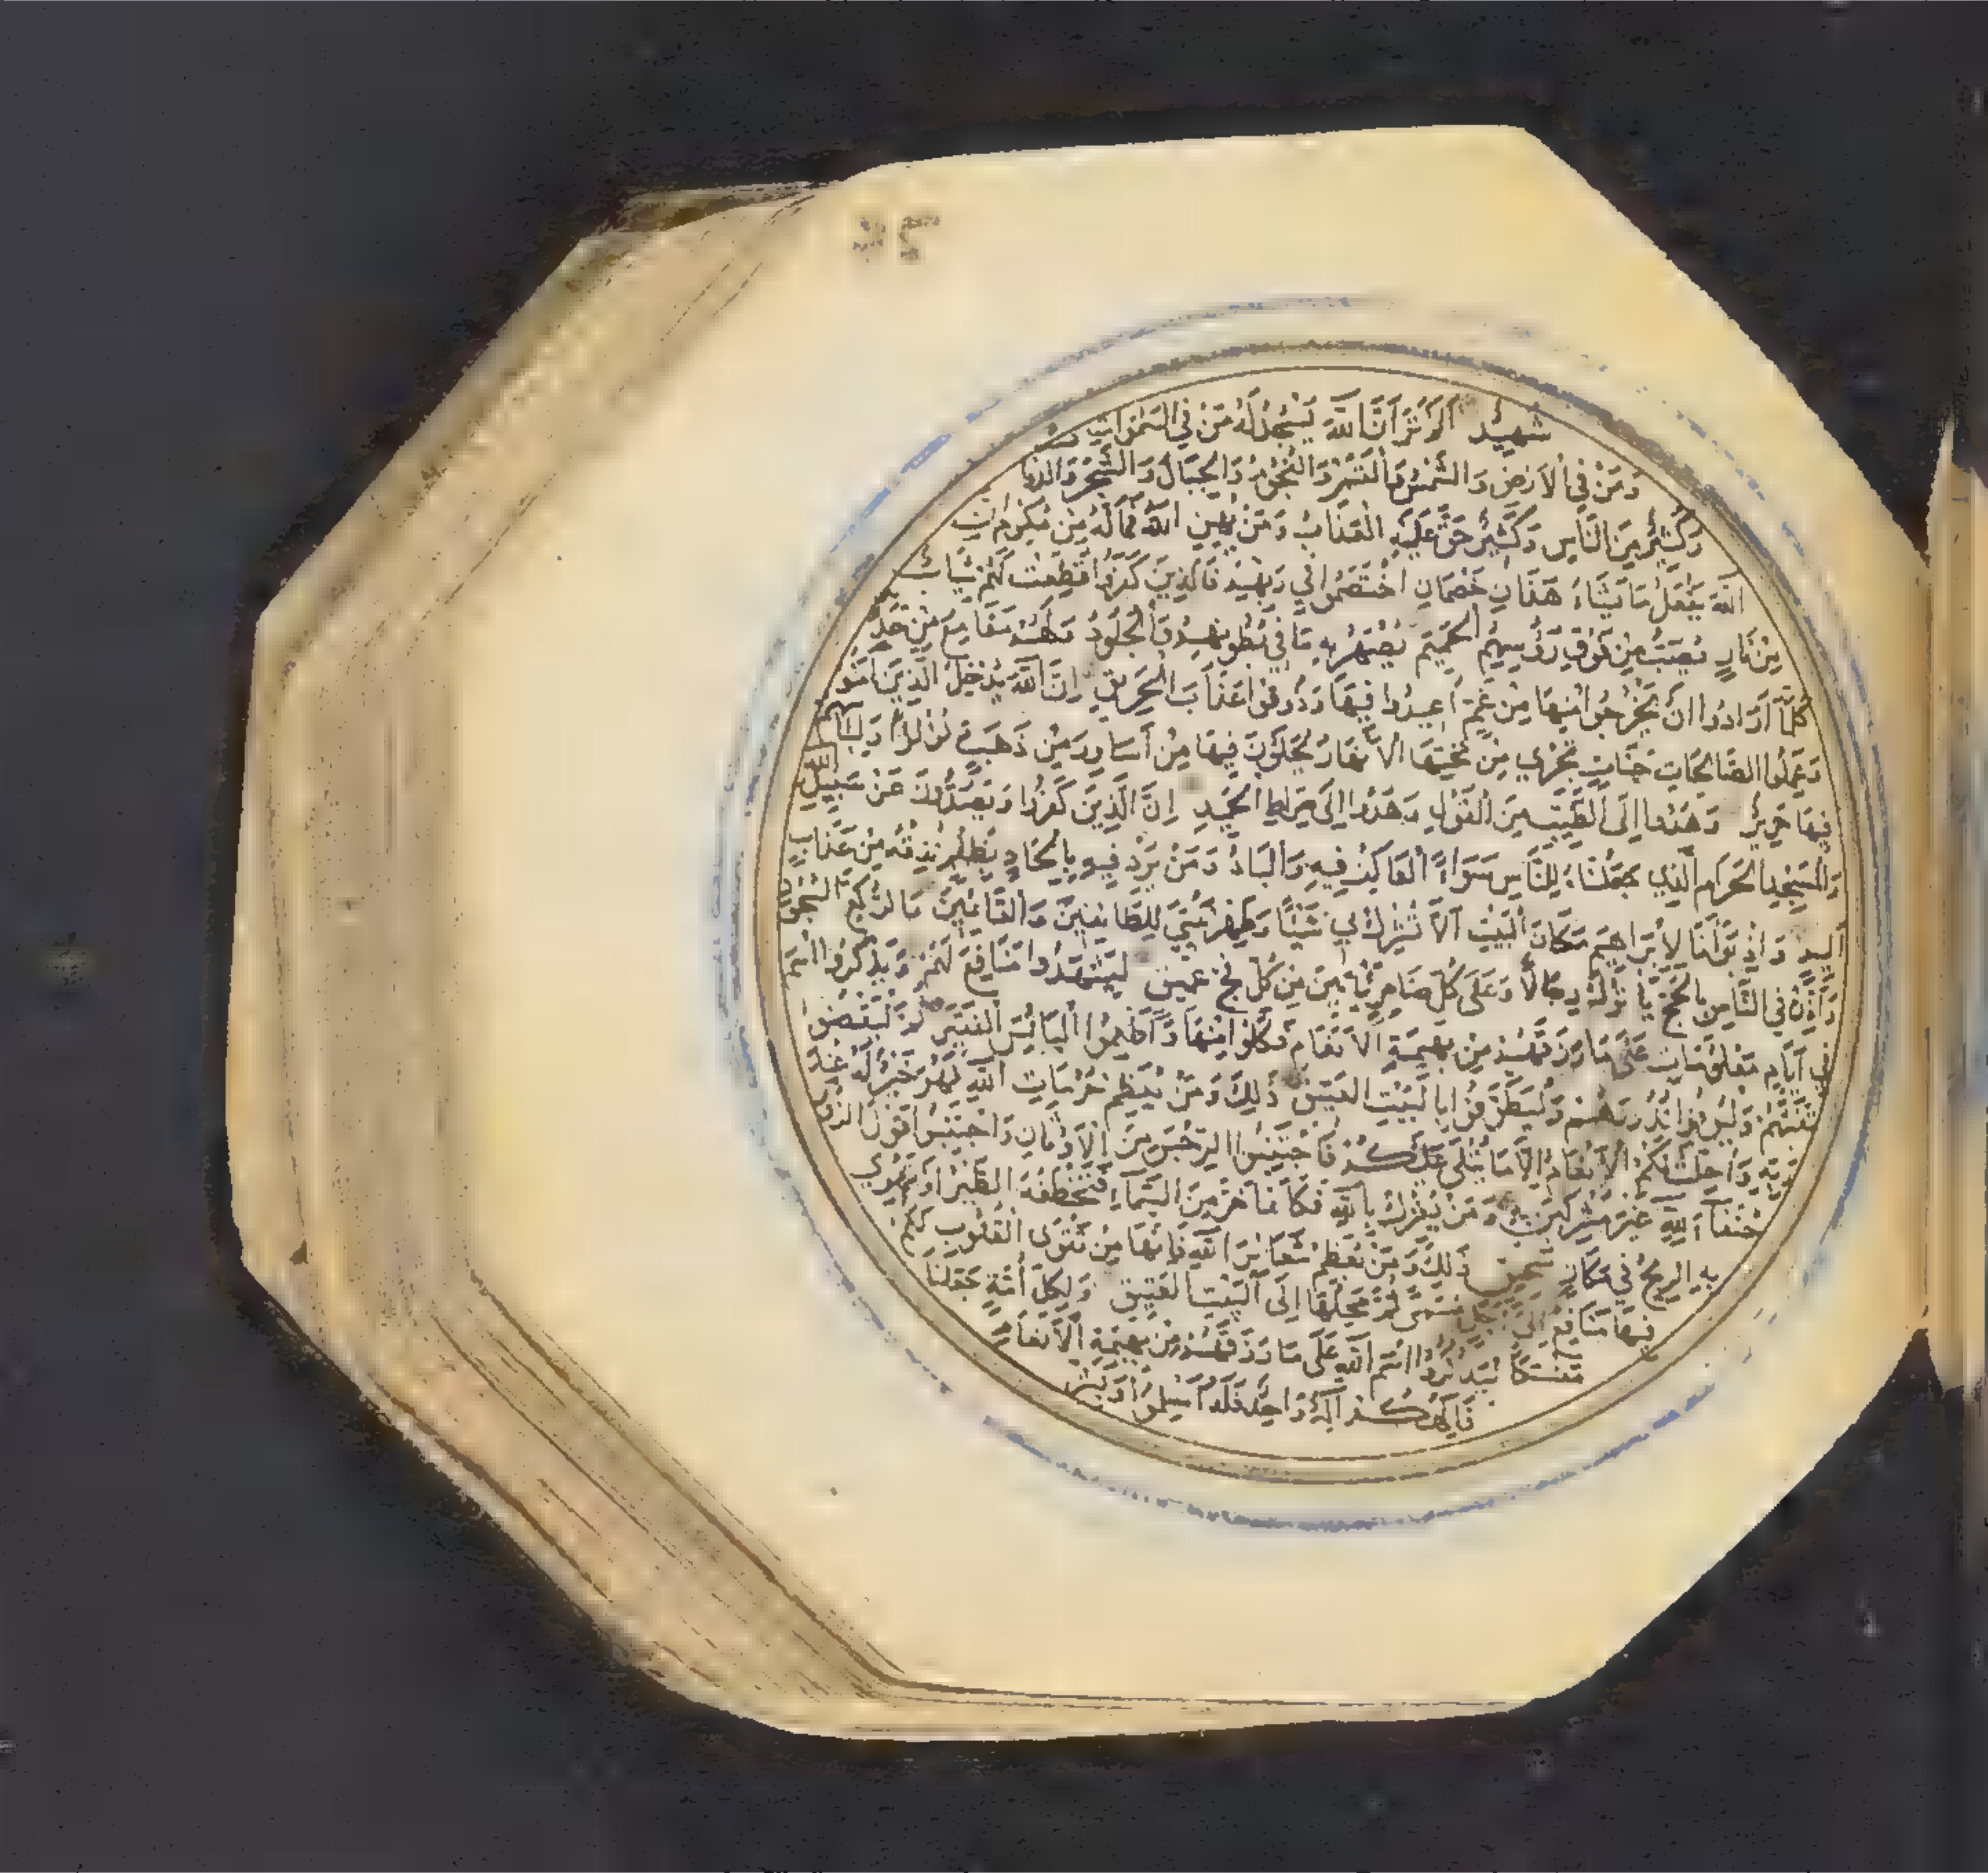 شَهِيدٌ اَلَمْ تَرَ اَنَّ اللّٰهَ يَسْجُدُ لَهُ مَنْ فِي السَّمٰوَاتِ
وَمَنْ فِي الْاَرْضِ وَالشَّمْسُ وَالْقَمَرُ وَالنُّجُومُ وَالْجِبَالُ وَالشَّجَرُ وَالدَّوَا
وَكَثِيرٌ مِنَ النَّاسِ وَكَثِيرٌ حَقَّ عَلَيْهِ الْعَذَابُ وَمَنْ يُهِنِ اللّٰهُ فَمَا لَهُ مِنْ مُكْرِمٍ اِنَّ
اللّٰهَ يَفْعَلُ مَا يَشَاءُ هَذَانِ خَصْمَانِ اخْتَصَمُوا فِي رَبِّهِمْ فَالَّذِينَ كَفَرُوا قُطِّعَتْ لَهُمْ ثِيَابٌ
مِنْ نَارٍ يُصَبُّ مِنْ فَوْقِ رَؤُسِهِمُ الْحَمِيمُ يُصْهَرُ بِهِ مَا فِي بُطُونِهِمْ وَالْجُلُودُ وَلَهُمْ مَقَامِعُ مِنْ حَدِ
كُلَّمَا اَرَادُوا اَنْ يَخْرُجُوا مِنْهَا مِنْ غَمٍّ اُعِيدُوا فِيهَا وَذُوقُوا عَذَابَ الْحَرِيقِ اِنَّ اللّٰهَ يُدْخِلُ الَّذِينَ اٰمَنُو
وَعَمِلُوا الصَّالِحَاتِ جَنَّاتٍ تَجْرِي مِنْ تَحْتِهَا الْاَنْهَارُ يُحَلَّوْنَ فِيهَا مِنْ اَسَاوِرَ مِنْ ذَهَبٍ وَلُؤْلُؤًا وَلِبَاسُهُمْ
فِيهَا حَرِيرٌ وَهُدُوا اِلَى الطَّيِّبِ مِنَ الْقَوْلِ وَهُدُوا اِلَى صِرَاطِ الْحَمِيدِ اِنَّ الَّذِينَ كَفَرُوا وَيَصُدُّونَ عَنْ سَبِيلِ اللّٰهِ
وَالْمَسْجِدِ الْحَرَامِ الَّذِي جَعَلْنَاهُ لِلنَّاسِ سَوَاءً الْعَاكِفُ فِيهِ وَالْبَادُ وَمَنْ يُرِدْ فِيهِ بِالْحَادٍ بِظُلْمٍ نُذِقْهُ مِنْ عَذَابٍ
اَلِيمٍ وَاِذْ بَوَّأْنَا لِاِبْرَاهِيمَ مَكَانَ الْبَيْتِ اَلَّا تُشْرِكْ بِي شَيْئًا وَطَهِّرْ بَيْتِيَ لِلطَّائِفِينَ وَالْقَائِمِينَ وَالرُّكَّعِ السُّجُودِ
وَاَذِّنْ فِي النَّاسِ بِالْحَجِّ يَأْتُوكَ رِجَالًا وَعَلَى كُلِّ ضَامِرٍ يَأْتِينَ مِنْ كُلِّ فَجٍّ عَمِيقٍ لِيَشْهَدُوا مَنَافِعَ لَهُمْ وَيَذْكُرُوا اسْمَ
فِي اَيَّامٍ مَعْلُومَاتٍ عَلَى مَا رَزَقَهُمْ مِنْ بَهِيمَةِ الْاَنْعَامِ فَكُلُوا مِنْهَا وَاَطْعِمُوا الْبَائِسَ الْفَقِيرَ ثُمَّ لْيَقْضُو
تَفَثَهُمْ وَلْيُوفُوا نُذُورَهُمْ وَلْيَطَّوَّفُوا بِالْبَيْتِ الْعَتِيقِ ذَلِكَ وَمَنْ يُعَظِّمْ حُرُمَاتِ اللّٰهِ فَهُوَ خَيْرٌ لَهُ عِنْدَ
رَبِّهِ وَاُحِلَّتْ لَكُمُ الْاَنْعَامُ اِلَّا مَا يُتْلَى عَلَيْكُمْ فَاجْتَنِبُوا الرِّجْسَ مِنَ الْاَوْثَانِ وَاجْتَنِبُوا قَوْلَ الزُّورِ
حُنَفَاءَ لِلّٰهِ غَيْرَ مُشْرِكِينَ بِهِ وَمَنْ يُشْرِكْ بِاللّٰهِ فَكَاَنَّمَا خَرَّ مِنَ السَّمَاءِ فَتَخْطَفُهُ الطَّيْرُ اَوْ تَهْوِي
بِهِ الرِّيحُ فِي مَكَانٍ سَحِيقٍ ذَلِكَ وَمَنْ يُعَظِّمْ شَعَائِرَ اللّٰهِ فَاِنَّهَا مِنْ تَقْوَى الْقُلُوبِ لَكُمْ
فِيهَا مَنَافِعُ اِلَى اَجَلٍ مُسَمًّى ثُمَّ مَحِلُّهَا اِلَى الْبَيْتِ الْعَتِيقِ وَلِكُلِّ اُمَّةٍ جَعَلْنَا
مَنْسَكًا لِيَذْكُرُوا اسْمَ اللّٰهِ عَلَى مَا رَزَقَهُمْ مِنْ بَهِيمَةِ الْاَنْعَامِ
فَاِلٰهُكُمْ اِلٰهٌ وَاحِدٌ فَلَهُ اَسْلِمُوا وَبَشِّرِ